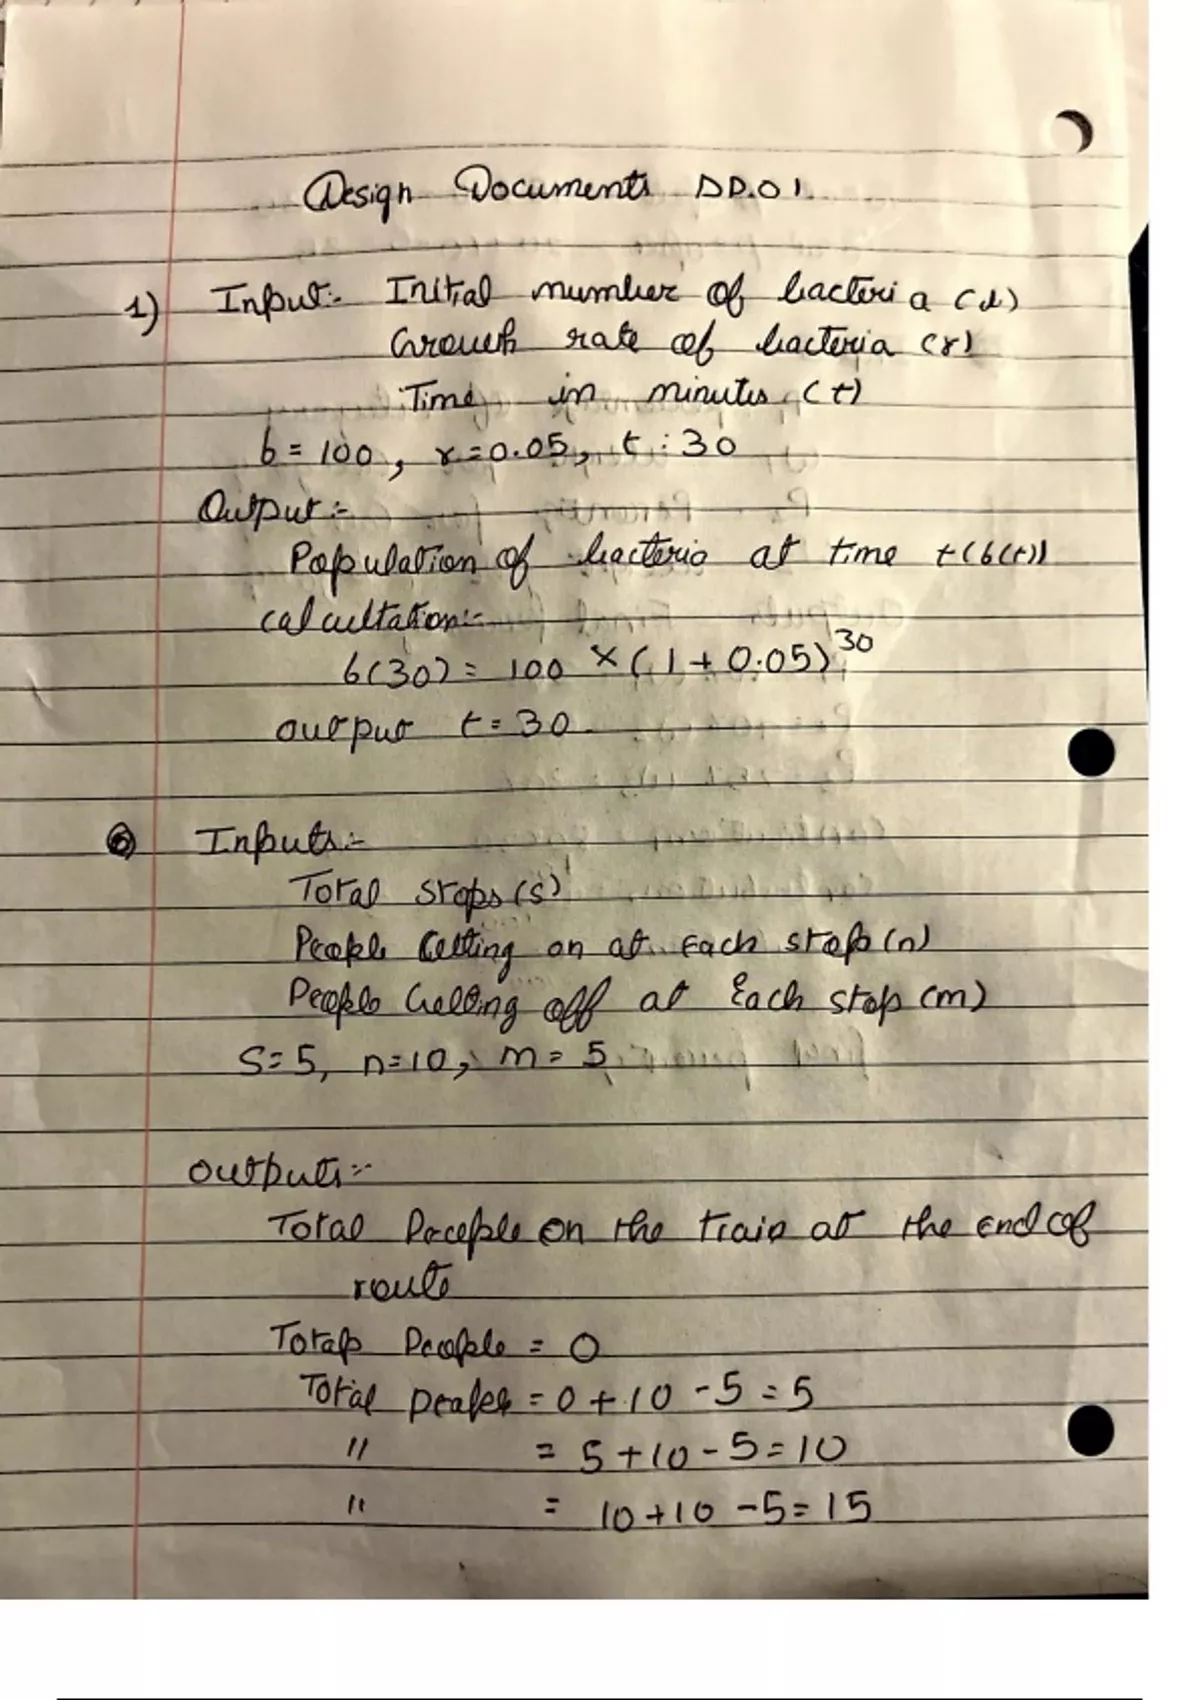 Design Documents DD.01.
1) Input:- Initial number of bacteria (b)
Growth rate of bacteria (r)
Time in minutes (t)
b = 100, r = 0.05, t : 30
Output :-
Population of bacteria at time t(b(t))
calcultation:-
b(30) = 100 × (1 + 0.05)^30
output t = 30.
Inputs:-
Total stops (s)
People Getting on at Each stop (n)
People Getting off at Each stop (m)
S = 5, n = 10, m = 5
outputs:-
Total People on the train at the end of
route
Total People = 0
Total People = 0 + 10 - 5 = 5
" = 5 + 10 - 5 = 10
" = 10 + 10 - 5 = 15